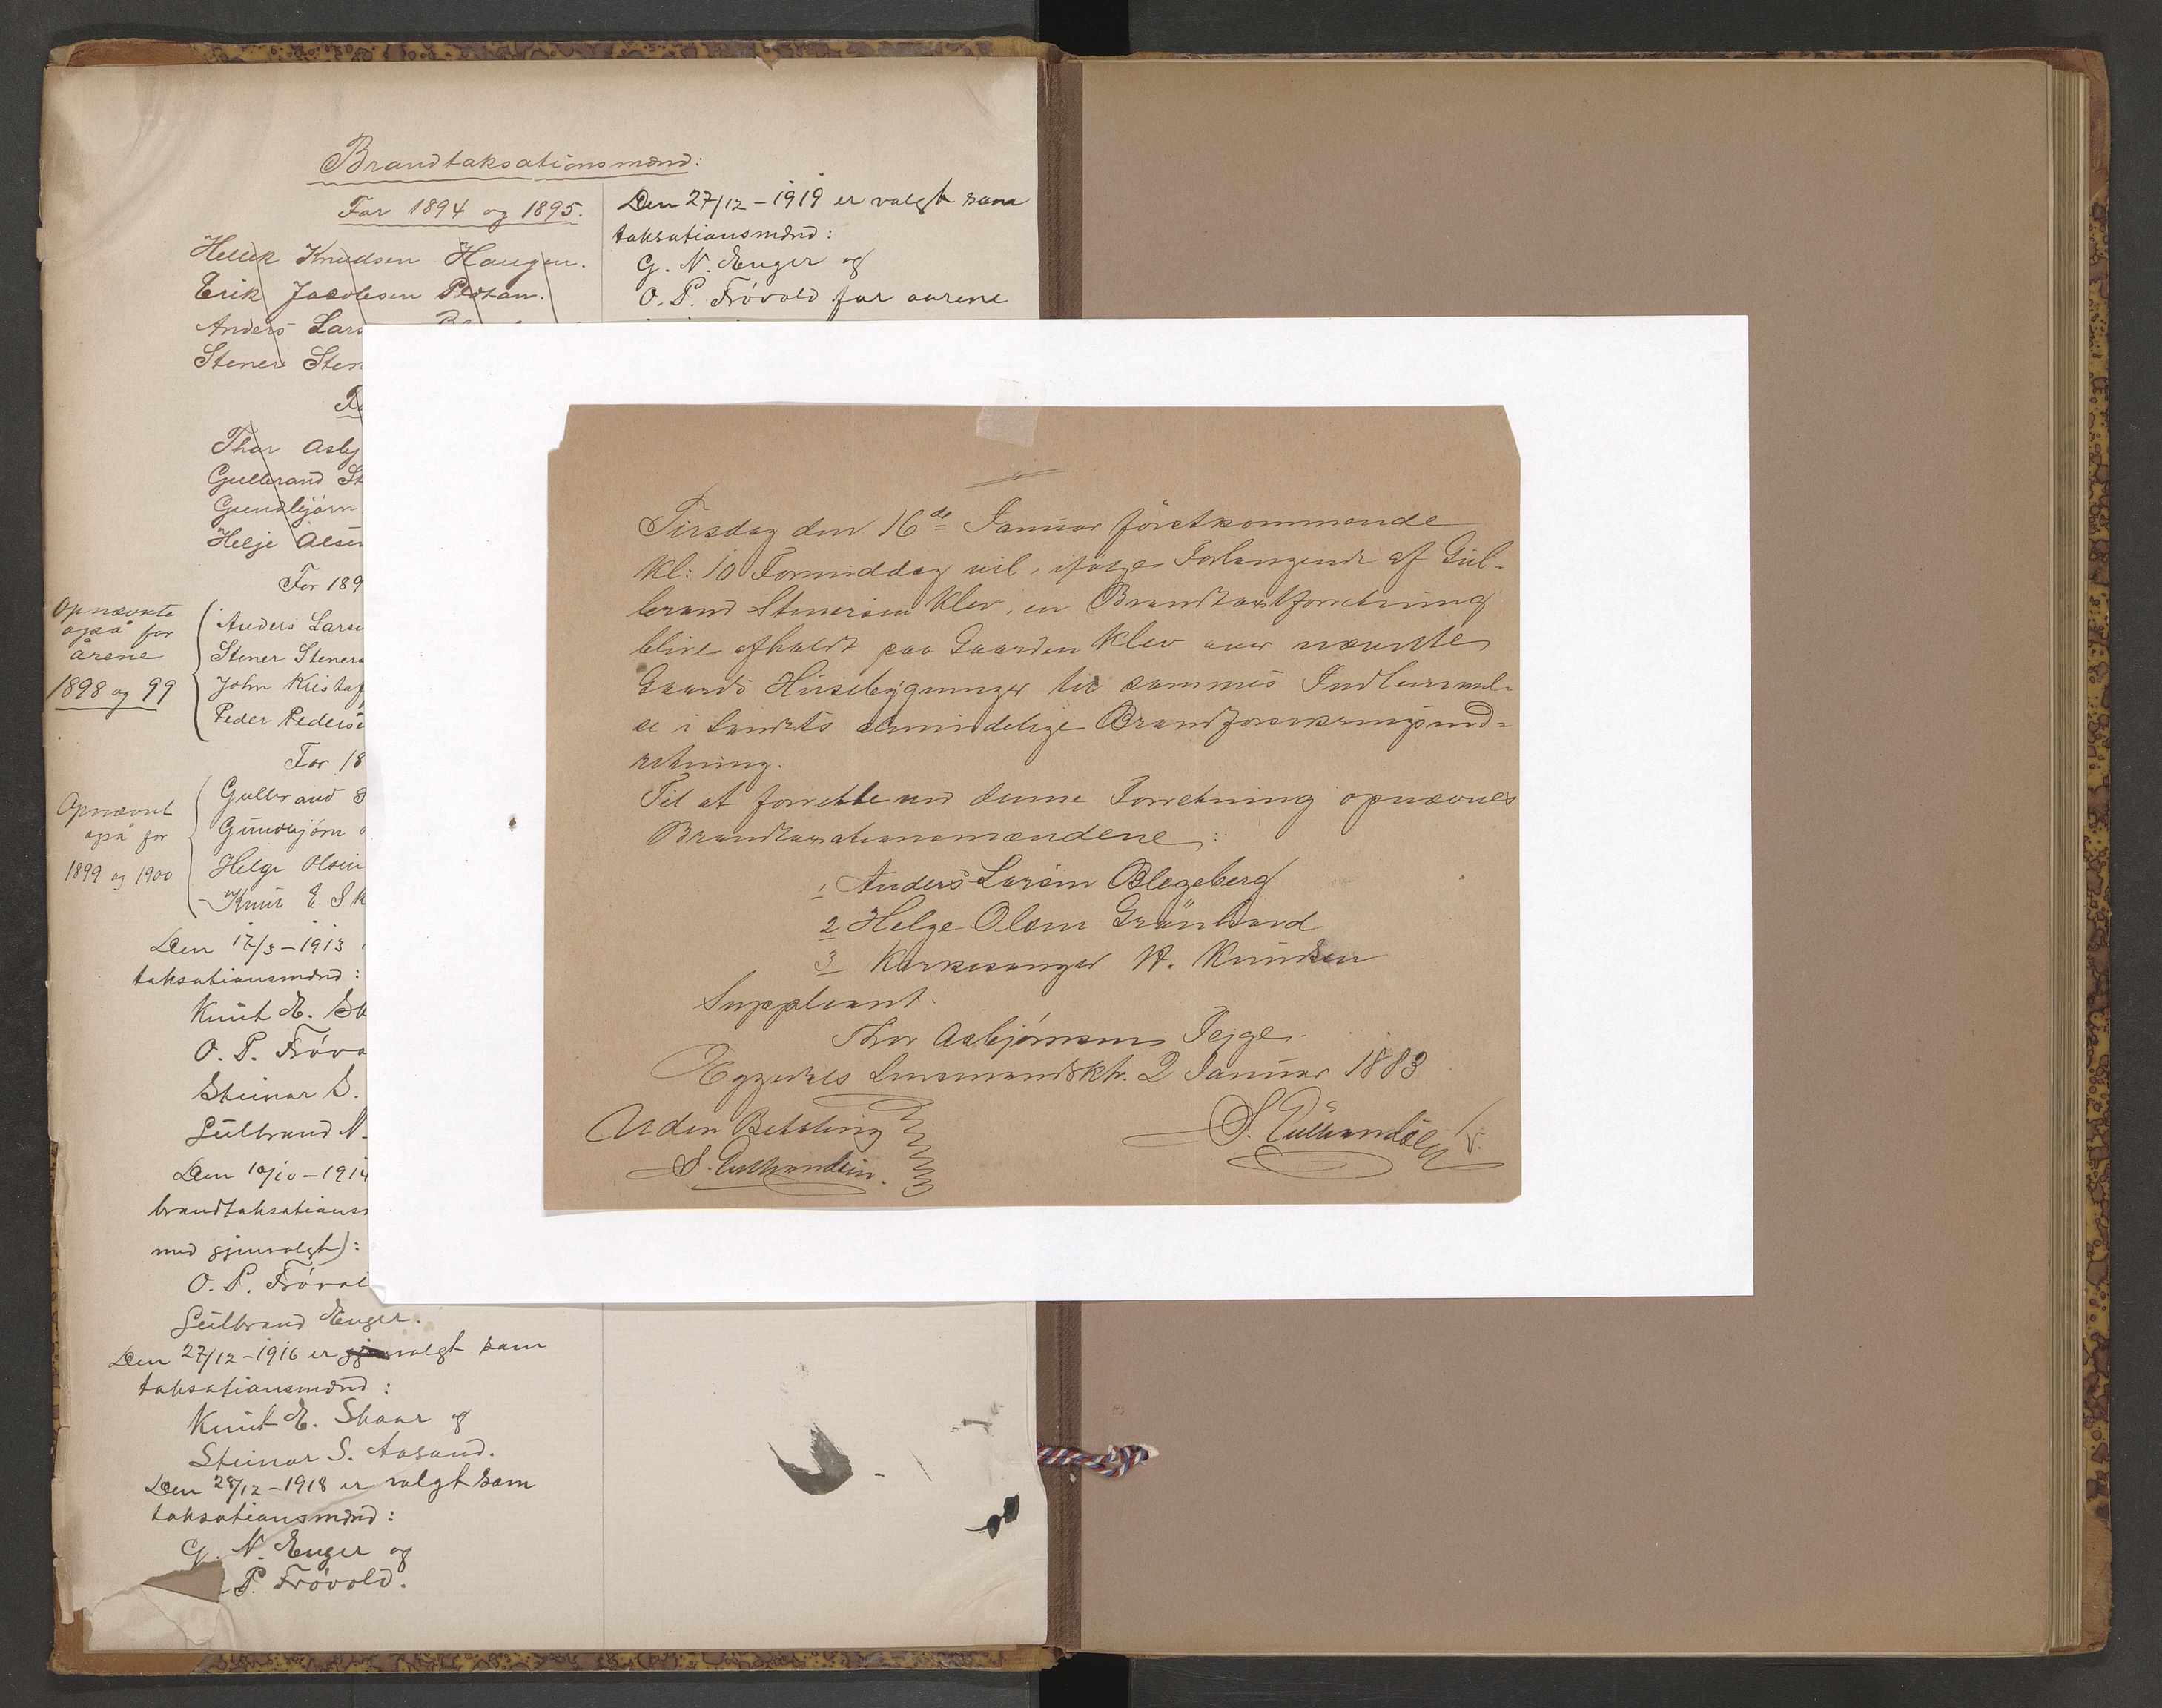 Brandtaksationsmænd:
For 1894 og 1895.
Hellik Knudsen Haugen.
Erik Jacobsen
Anders Lars
Stener Sten
Thor Asbj
Gulbrand St
Gundbjörn
Helje Olsen
For 189
Opnævnte
også for
årene
1898 og 99
Anders Larse
Stener Steners
John Kristof
Peder Pederse
For 18
Opnævnt
også for
1899 og 1900
Gulbrand S
Gundbjörn
Helge Olsen
Knut E. Sk
Den 17/3-1913
taksationsmænd:
Knut E. Sk
O. P. Frövo
Steinar S.
Gulbrand N.
Den 10/10-1914
brandtaksations
med gjenvalgt):
O. P. Fröval
Gulbrand Enger.
Den 27/12-1916 er valgt som
taksationsmænd:
Knut E. Skaar og
Steinar S. Aasand.
Den 28/12-1918 er valgt som
taksationsmænd:
G. N. Enger og
P. Frövold.
Den 27/12-1919 er valgt som
taksationsmænd:
G. N. Enger og
O. P. Frövold for aarene
Tirsdag den 16de Januar förstkommende
Kl: 10 Formiddag vil, ifölge Forlangende af Gul-
brand Stenersen Klev, en Brandtaxtforretning
blive afholdt paa Gaarden Klev over nævnte
Gaards Husebygninger til sammes Indlemmel-
se i Landets almindelige Brandforsikringsind-
retning.
Til at forrette ved denne Forretning opnævnes
Brandtaxationsmændene:
1 Anders Larsen Blegeberg
2 Helge Olsen Grönhovd
3 Kirkesanger H. Knudsen
Suppleant
Thor Asbjörnsen Tejge.
Eggedals Lensmandsktr. 2 Januar 1883
S. Gulbrandsen
Uden Betaling
S. Gulbrandsen.